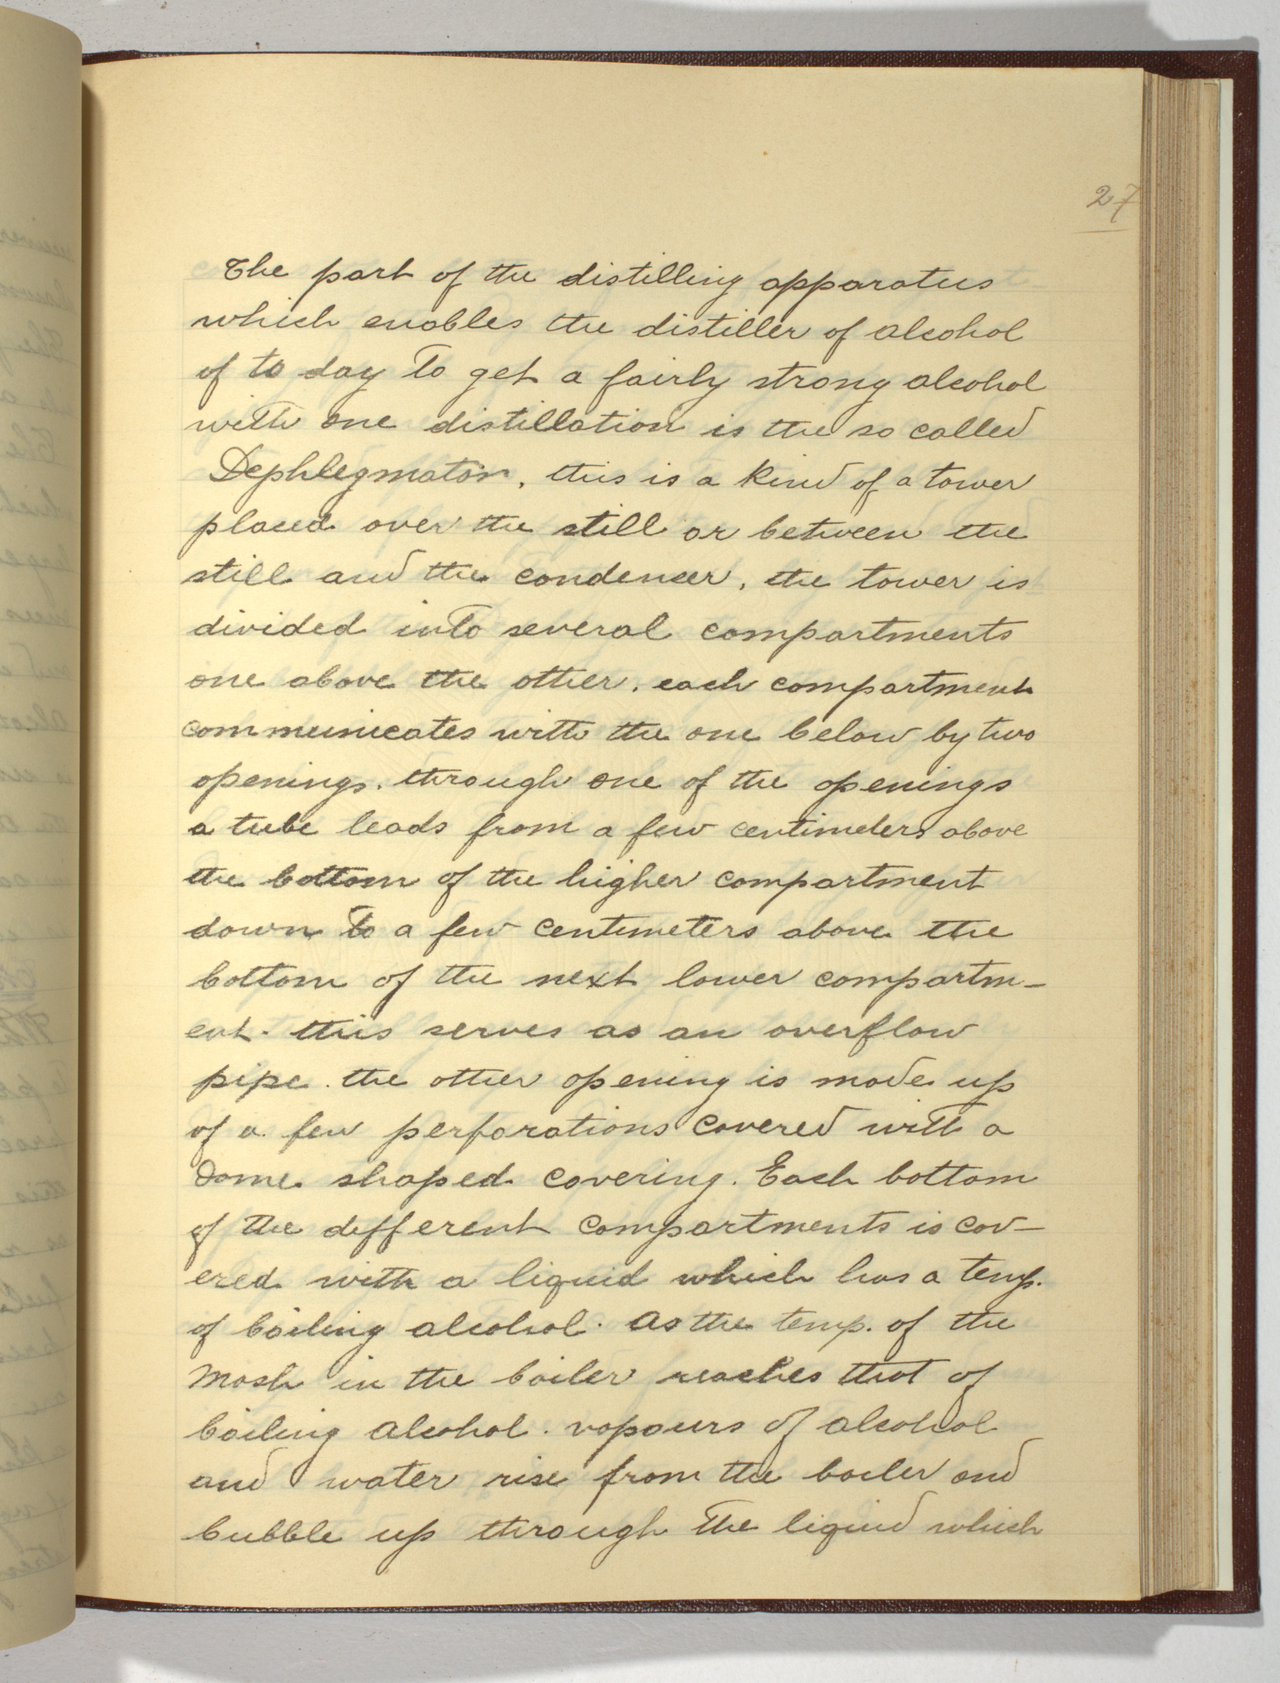 27
The part of the distilling apparatus
which enables the distiller of alcohol
of to day to get a fairly strong alcohol
with one distillation is the so called
Dephlegmator, this is a kind of a tower
placed over the still or between the
still and the condenser, the tower is
divided into several compartments
one above the other. each compartment
communicates with the one below by two
openings. through one of the openings
a tube leads from a few centimeters above
the bottom of the higher compartment
down to a few centimeters above the
bottom of the next lower compartm-
ent. this serves as an overflow
pipe. the other opening is made up
of a few perforations covered with a
dome shaped covering. Each bottom
of the different compartments is cov-
ered with a liquid which has a temp.
of boiling alcohol. as the temp. of the
mash in the boiler reaches that of
boiling alcohol. vapours of alcohol
and water rise from the boiler and
bubble up through the liquid which